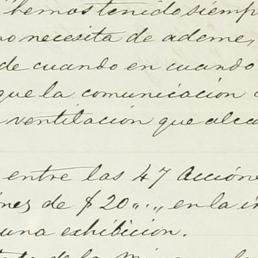 hemos tenido siemp
no necesita de ademe,
de cuando en cuando
que la comunicacion
ventilacion que alca
entre las 47 accione
nes de $20"..., en la i
una exhibicion.